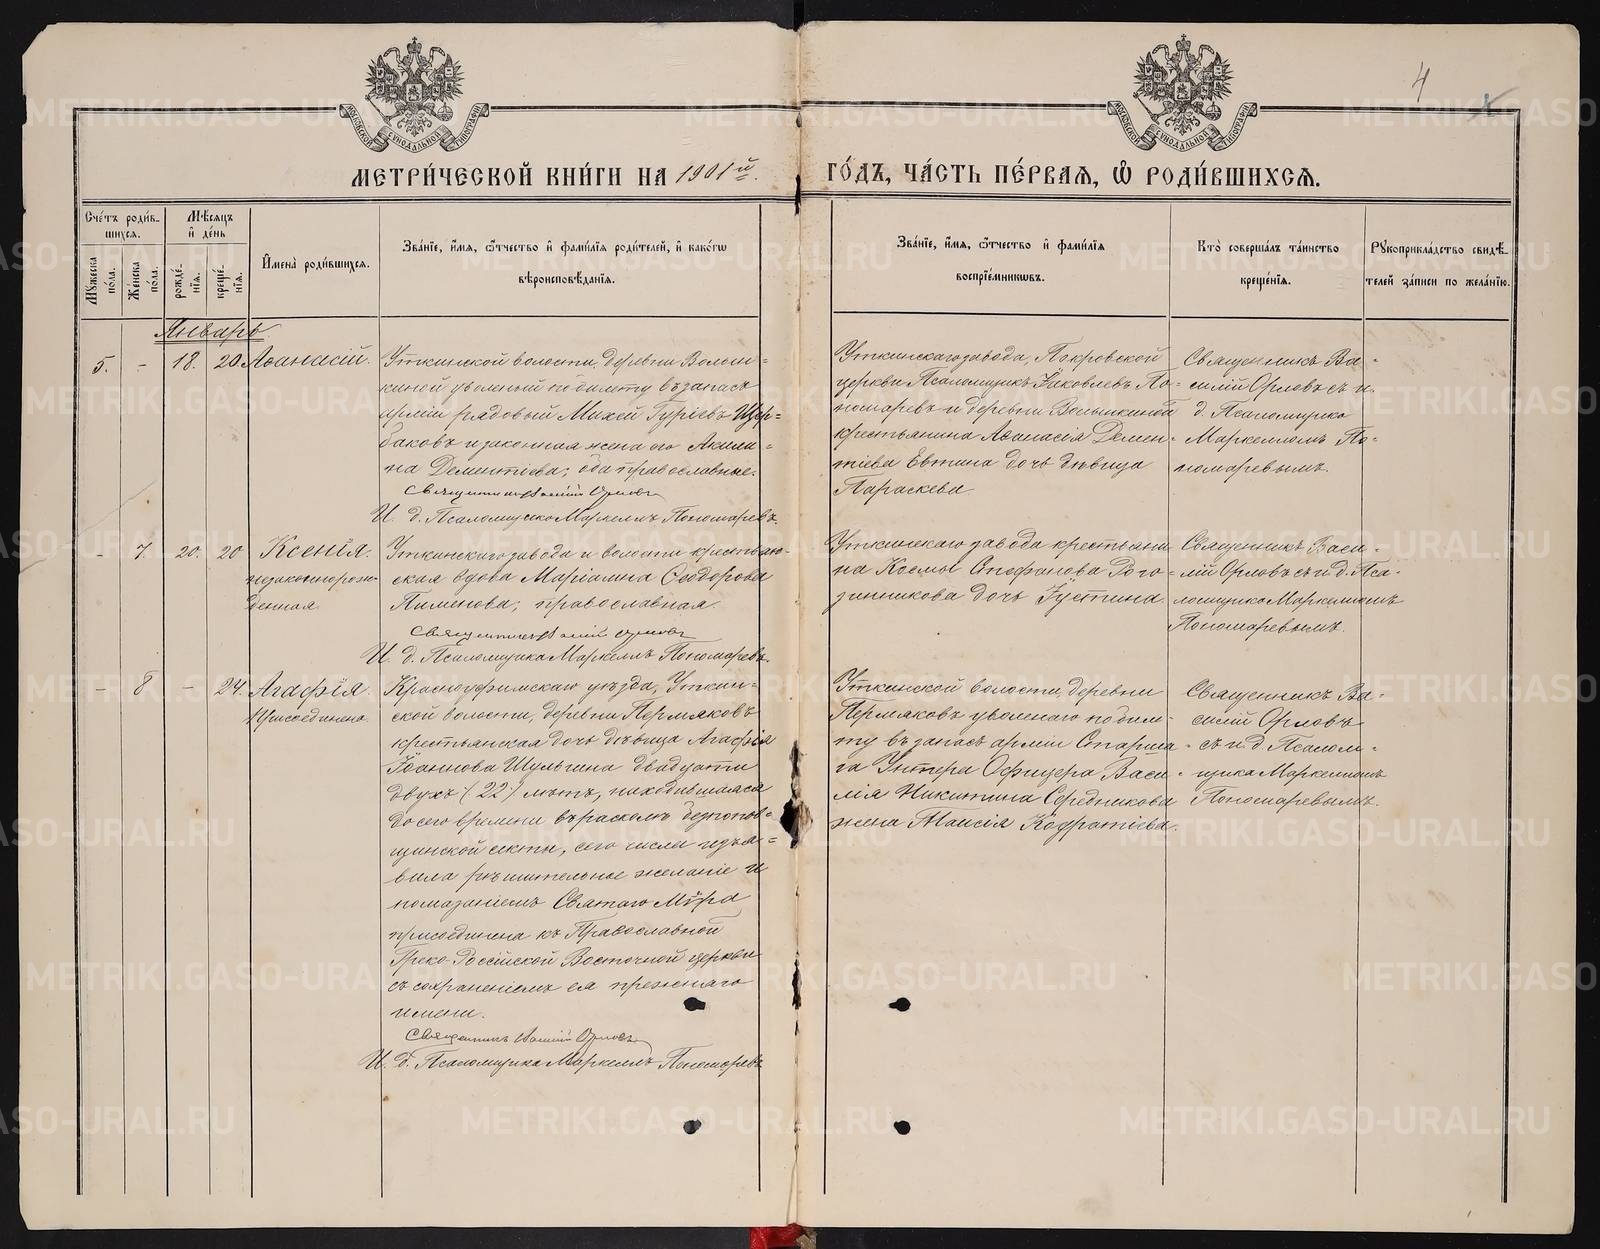 4
МОСКОВСКОЙ СУНОДАЛЬНОЙ ТИПОГРАФІИ
МОСКОВСКОЙ СУНОДАЛЬНОЙ ТИПОГРАФІИ
МЕТРИ́ЧЕСКОЙ КНИ́ГИ НА 1901й. ГО́ДЪ, ЧА́СТЬ ПЕ́РВАЯ, Ѽ РОДИ́ВШИХСЯ.
Сче́тъ роди́в-
шихся.
Мѣсяцъ
и҆ де́нь
Мꙋ́жеска
по́ла.
Же́нска
по́ла.
рожде́-
нїя.
креще́-
нїя.
И҆мена̀ роди́вшихся.
Зва́нїе, и҆́мя, ѻ҆́тчество и҆ фами́лїя роди́телей, и҆ како́гѡ
вѣроисповѣ́данїя.
Зва́нїе, и҆́мя, ѻ҆́тчество и҆ фами́лїя
воспрїе́мникѡвъ.
Кто̀ соверша́лъ та́инство
креще́нїя.
Рꙋкоприкла́дство свидѣ́-
телей за́писи по жела́нїю.
Январь
5. - 18. 20. Аѳанасій.
Уткинской волости, деревни Волын=
киной уволеный по билету въ запасъ
арміи рядовый Михей Гурiевъ Щер=
баковъ и законная жена его Акили=
на Дементіева; оба православные.
Священникъ Василій Орловъ
И. д. Псаломщика Маркеллъ Пономаревъ.
Уткинскаго завода, Покровской
церкви Псаломщикъ Іаковлевъ По=
номаревъ и деревни Волынкиной
крестьянина Аѳанасія Демен=
тіева Евтина дочь дѣвица
Параскева.
Священникъ Ва=
силій Орловъ съ и.
д. Псаломщика
Маркелломъ По=
номаревымъ.
- 7. 20. 20 Ксенія.
незаконнорож-
денная
Уткинскаго завода и волости крестьян-
ская вдова Маріамна Ѳеодорова
Пименова, православная.
Священникъ Василій Орловъ
И. д. Псаломщика Маркеллъ Пономаревъ.
Уткинскаго завода крестьяни
на Космы Стефанова Рого=
зинникова дочь Іустина.
Священникъ Васи=
лій Орловъ съ и. д. Пса=
ломщика Маркелломъ
Пономаревымъ.
- 8 - 24. Агафія.
Присоединена.
Красноуфимскаго уѣзда, Уткин=
ской волости, деревни Пермяковъ
крестьянская дочь дѣвица Агафія
Іоаннова Шульгина двадцати
двухъ (22) лѣтъ, находившаяся
до сего времени въ расколѣ безпопов=
щинской секты, сего числа изъя=
вила рѣшительное желаніе и
помазаніемъ Святаго Мѵра
присоединена къ Православной
Греко-Россійской Восточной церкви
съ сохраненіемъ ея прежняго
имени.
Священникъ Василій Орловъ
И. д. Псаломщика Маркеллъ Пономаревъ
Уткинской волости, деревни
Пермяковъ уволенаго по биле-
ту въ запасъ арміи Старша=
го Унтера Офицера Васи=
лія Никитина Середникова
жена Таисія Кодратіева.
Священникъ Ва=
силій Орловъ
съ и. д. Псалом=
щика Маркелломъ
Пономаревымъ.
METRIKI.GASO-URAL.RU